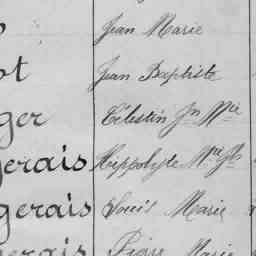 Jean Marie
ot Jean Baptiste
ger Célestin Jn Mie
gerais Hippolyte Mie Jh
gerais Louis Marie
gerais Pierre Marie